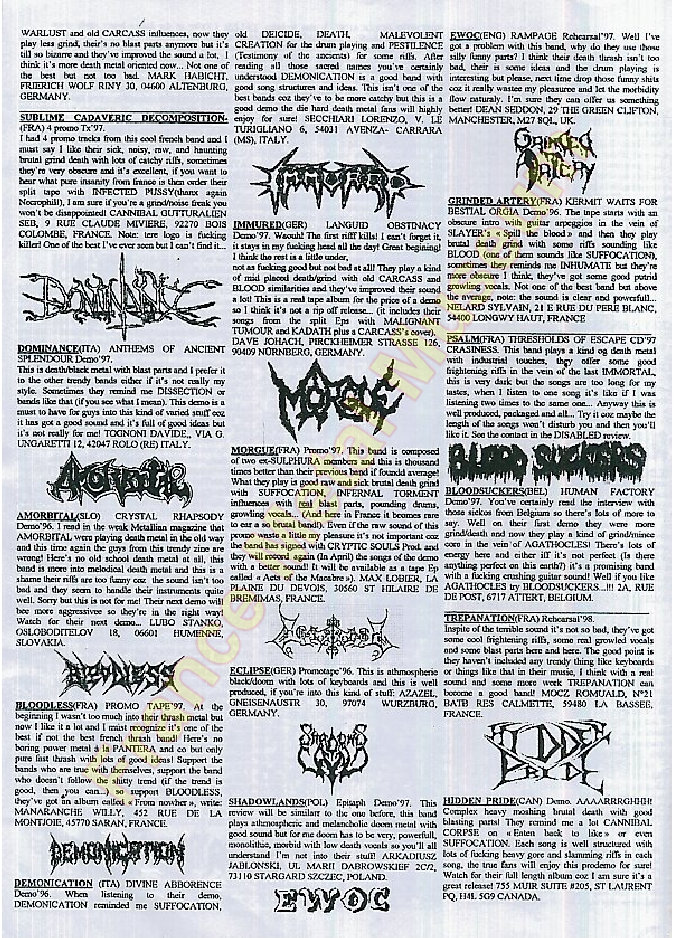 WARLUST and old CARCASS influences, now they
play less grind, their's no blast parts anymore but it's
till so bizarre and they've improved the sound a lot. I
think it's more death metal oriented now... Not one of
the best but not too bad. MARK HABICHT,
FRIERICH WOLF RINY 30, 04600 ALTENBURG,
GERMANY.
SUBLIME CADAVERIC DECOMPOSITION-
(FRA) 4 promo Tx'97.
I had 4 promo tracks from this cool french band and I
must say I like their sick, noisy, raw, and haunting
brutal grind death with lots of catchy riffs, sometimes
they're very obscure and it's excellent, if you want to
hear what pure insanity from france is then order their
split tape with INFECTED PUSSY(thanx again
Necrophil), I am sure if you're a grind/noise freak you
won't be disappointed! CANNIBAL GUTTURALIEN
SEB, 9 RUE CLAUDE MIVIERE, 92270 BOIS
COLOMBE, FRANCE. Note: tere logo is fucking
killer! One of the best I've ever seen but I can't find it...
DOMINANCE
DOMINANCE(ITA) ANTHEMS OF ANCIENT
SPLENDOUR Demo'97.
This is death/black metal with blast parts and I prefer it
to the other trendy bands either if it's not really my
style. Sometimes they remind me DISSECTION or
bands like that (if you see what I mean). This demo is a
must to have for guys into this kind of varied stuff coz
it has got a good sound and it's full of good ideas but
it's not really for me! TOGNONI DAVIDE,, VIA G.
UNGARETTI 12, 42047 ROLO (RE) ITALY.
AMORBITAL
AMORBITAL(SLO) CRYSTAL RHAPSODY
Demo'96. I read in the weak Metallian magazine that
AMORBITAL were playing death metal in the old way
and this time again the guys from this trendy zine are
wrong! Here's no old school death metal at all, this
band is more into melodical death metal and this is a
shame their riffs are too funny coz the sound isn't too
bad and they seem to handle their instruments quite
well. Sorry but this is not for me! Their next demo will
bee more aggressive so they're in the right way!
Watch for their next demo... LUBO STANKO,
OSLOBODITELOV 18, 06601 HUMENNE,
SLOVAKIA.
BLOODLESS
BLOODLESS(FRA) PROMO TAPE'97. At the
beginning I wasn't too much into their thrash metal but
now I like it a lot and I must recognize it's one of the
best if not the best french thrash band! Here's no
boring power metal à la PANTERA and co but only
pure fast thrash with lots of good ideas! Support the
bands who are true with themselves, support the band
who doesn't follow the shitty trend (if the trend is
good, then you can...) so support BLOODLESS,
they've got an album called « From nowher », write:
MANARANCHE WILLY, 452 RUE DE LA
MONTJOIE, 45770 SARAN, FRANCE.
DEMONICATION
DEMONICATION (ITA) DIVINE ABBORENCE
Demo'96. When listening to their demo,
DEMONICATION reminded me SUFFOCATION,
old DEICIDE, DEATH, MALEVOLENT
CREATION for the drum playing and PESTILENCE
(Testimony of the ancients) for some riffs. After
reading all those sacred names you've certainly
understood DEMONICATION is a good band with
good song structures and ideas. This isn't one of the
best bands coz they've to be more catchy but this is a
good demo the die hard death metal fans will highly
enjoy for sure! SECCHIARI LORENZO, V. LE
TURIGLIANO 6, 54031 AVENZA- CARRARA
(MS), ITALY.
IMMURED
IMMURED(GER) LANGUID OBSTINACY
Demo'97. Waouh! The first riff kills! I can't forget it,
it stays in my fucking head all the day! Great beginning!
I think the rest is a little under,
not as fucking good but not bad at all! They play a kind
of mid placed death/grind with old CARCASS and
BLOOD similarities and they've improved their sound
a lot! This is a real tape album for the price of a demo
so I think it's not a rip off release... (it includes their
songs from the split Eps with MALIGNANT
TUMOUR and KADATH plus a CARCASS's cover).
DAVE JOHACH, PIRCKHEIMER STRASSE 126,
90409 NÜRNBERG, GERMANY.
MORGUE
MORGUE(FRA) Promo'97. This band is composed
of two ex-SULPHURA members and this is thousand
times better than their previous band if found average!
What they play is good raw and sick brutal death grind
with SUFFOCATION, INFERNAL TORMENT
influences with real blast parts, pounding drums,
growling vocals... (And here in France it becomes rare
to ear a so brutal band). Even if the raw sound of this
promo waste a little my pleasure it's not important coz
the band has signed with CRYPTIC SOULS Prod. and
they will record again (In April) the songs of the demo
with a better sound! It will be available as a tape Ep
called « Acts of the Macabre »). MAX LOBIER, LA
PLAINE DU DEVOIS, 30560 ST HILAIRE DE
BREMIMAS, FRANCE.
ECLIPSE
ECLIPSE(GER) Promotape'96. This is athmospheric
black/doom with lots of keyboards and this is well
produced, if you're into this kind of stuff: AZAZEL,
GNEISENAUSTR 30, 97074 WURZBURG,
GERMANY.
SHADOWLANDS
SHADOWLANDS(POL) Epitaph Demo'97. This
review will be similar to the one before, this band
plays athmospheric and melancholic doom metal with
good sound but for me doom has to be very, powerfull,
monolithic, morbid with low death vocals so you'll all
understand I'm not into their stuff! ARKADIUSZ
JABLONSKI, UL MARII DABROWSKIEF 2C/2,
73110 STARGARD SZCZEC, POLAND.
EWOC
EWOC(ENG) RAMPAGE Rehearsal'97. Well I've
got a problem with this band, why do they use those
silly funny parts? I think their death thrash isn't too
bad, their is some ideas and the drum playing is
interesting but please, next time drop those funny shits
coz it really wastes my pleasure and let the morbidity
flow naturally. I'm sure they can offer us something
better! DEAN SEDDON, 29 THE GREEN CLIFTON,
MANCHESTER, M27 8QL, UK.
GRINDED ARTERY
GRINDED ARTERY(FRA) KERMIT WAITS FOR
BESTIAL ORGIA Demo'96. The tape starts with an
obscure intro with guitar arpeggios in the vein of
SLAYER's « Spill the blood » and then they play
brutal death grind with some riffs sounding like
BLOOD (one of them sounds like SUFFOCATION),
sometimes they reminds me INHUMATE but they're
more obscure I think, they've got some good putrid
growling vocals. Not one of the best band but above
the average, note: the sound is clear and powerfull...
NELARD SYLVAIN, 21 E RUE DU PERE BLANC,
54400 LONGWY HAUT, FRANCE
PSALM(FRA) THRESHOLDS OF ESCAPE CD'97
CRASINESS. This band plays a kind og death metal
with industrial touches, they offer some good
frightening riffs in the vein of the last IMMORTAL,
this is very dark but the songs are too long for my
tastes, when I listen to one song it's like if I was
listening two times to the same one... Anyway this is
well produced, packaged and all... Try it coz maybe the
length of the songs won't disturb you and then you'll
like it. See the contact in the DISABLED review.
BLOOD SUCKERS
BLOODSUCKERS(BEL) HUMAN FACTORY
Demo'97. You've certainly read the interview with
those sickos from Belgium so there's lots of more to
say. Well on their first demo they were more
grind/death and now they play a kind of grind/mince
core in the vein of AGATHOCLES! There's lots of
energy here and either iff it's not perfect (Is there
anything perfect on this earth?) it's a promising band
with a fucking crushing guitar sound! Well if you like
AGATHOCLES try BLOODSUCKERS...!!! 2A, RUE
DE POST, 6717 ATTERT, BELGIUM.
TREPANATION(FRA) Rehearsal'98.
Inspite of the terrible sound it's not so bad, they've got
some cool frightening riffs, some real growled vocals
and some blast parts here and here. The good point is
they haven't included any trendy thing like keyboards
or things like that in their music, I think with a real
sound and some more week TREPANATION can
become a good band! MOCZ ROMUALD, N°21
BATB RES CALMETTE, 59480 LA BASSEE,
FRANCE.
HIDDEN PRIDE
HIDDEN PRIDE(CAN) Demo. AAAARRRGHHH!
Complex heavy moshing brutal death with good
blasting parts! They remind me a lot CANNIBAL
CORPSE on « Eaten back to like » or even
SUFFOCATION. Each song is well structured with
lots of fucking heavy gore and slamming riffs in each
song, the true fans will enjoy this prodemo for sure!
Watch for their full length album coz I am sure it's a
great release! 755 MUIR SUITE #205, ST LAURENT
PQ, H4L 5G9 CANADA.